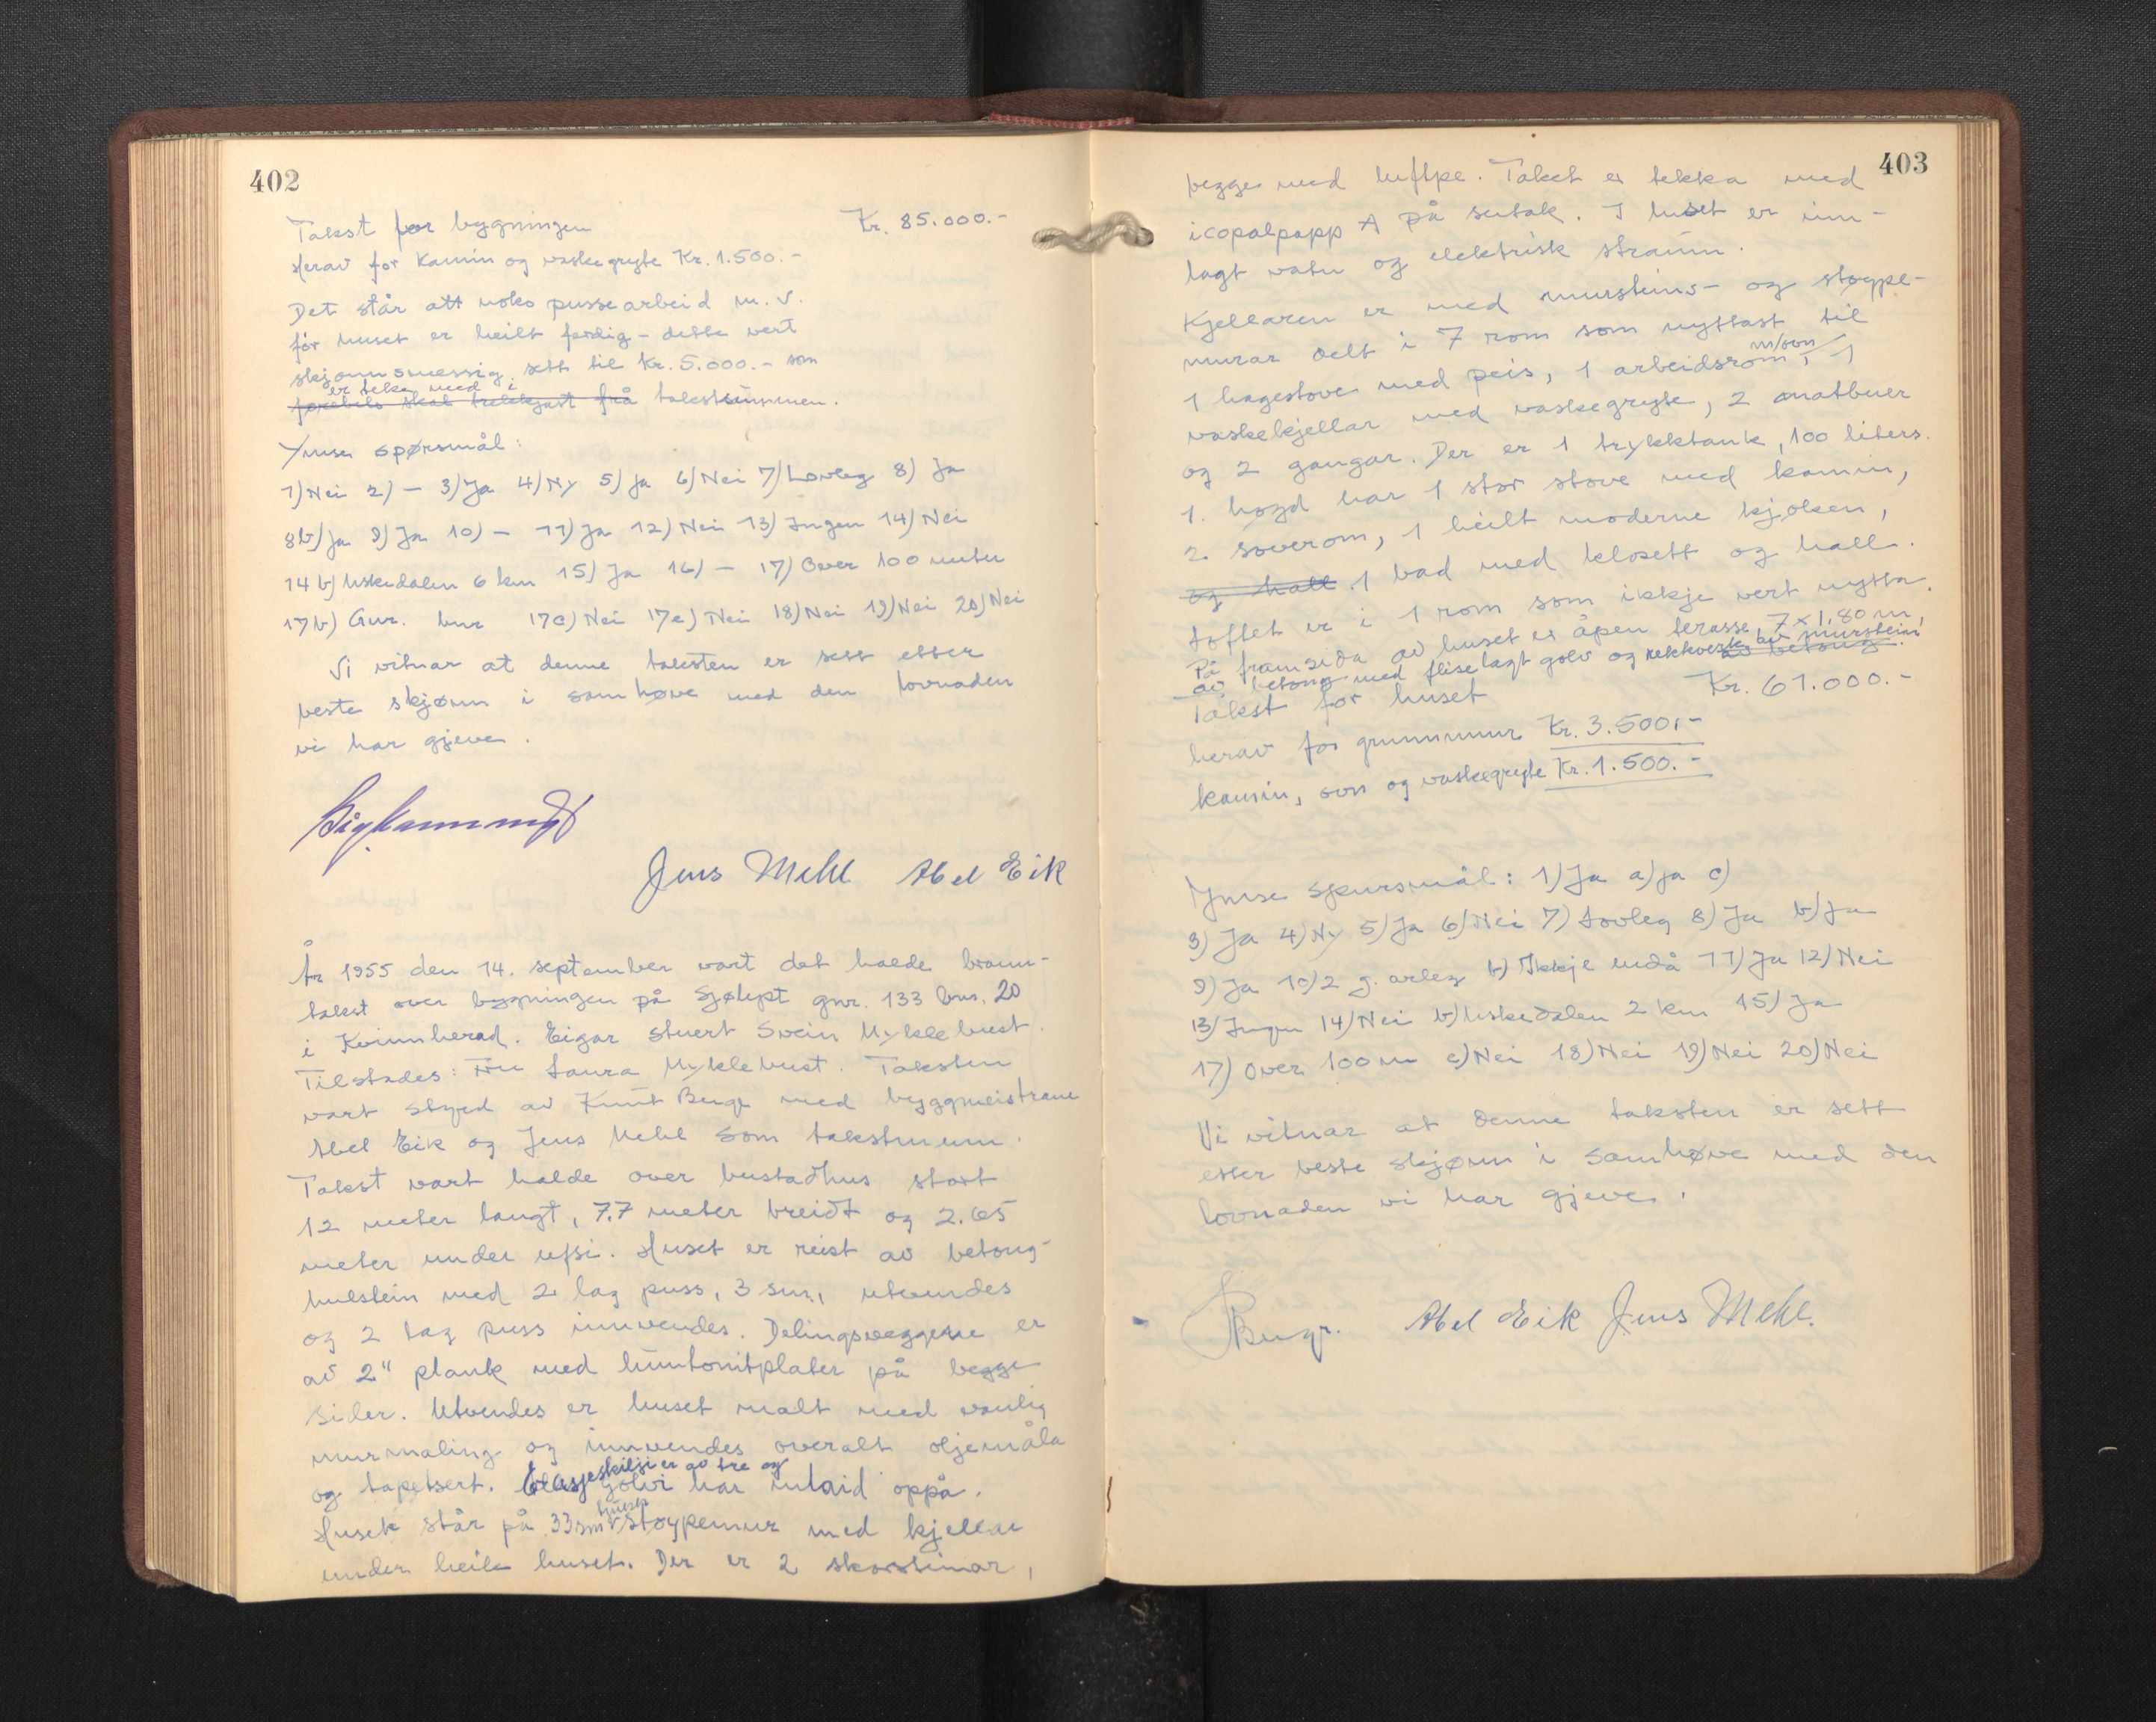 402
Takst for bygningen Kr. 85.000.-
Herav for kamin og vaskegryte Kr. 1.500.-
Det står att noko pussearbeid m.v.
før huset er heilt ferdig - dette vert
skjønnsmessig sett til Kr. 5.000.- som
er teke med i
førebels skal trekkjast frå takstsummen.
Ymse spørsmål:
1) Nei 2) - 3) Ja 4) Ny 5) Ja 6) Nei 7) Lovleg 8) Ja
8b) Ja 9) Ja 10) - 11) Ja 12) Nei 13) Ingen 14) Nei
14 b) Uskedalen 6 km 15) Ja 16) - 17) Over 100 meter
17b) Gur. bur 17c) Nei 17e) Nei 18) Nei 19) Nei 20) Nei
Vi vitnar at denne taksten er sett etter
beste skjønn i samhøve med den lovnaden
vi har gjeve.
Jens Mehl Abel Eik
År 1955 den 14. september vart det halde brann-
takst over bygningen på Sjøtept gnr. 133 bnr. 20
i Kvinnherad. Eigar stuert Svein Myklebust.
Tilstades: Fru Laura Myklebust. Taksten
vart styrd av Knut Berge med byggmeistrane
Abel Eik og Jens Mehl som takstmenn.
Takst vart halde over bustadhus stort
12 meter langt, 7,7 meter breidt og 2.65
meter under ufsi. Huset er reist av betong-
hulstein med 2 lag puss, 3 sm, utvendes
og 2 lag puss innvendes. Delingsveggene er
av 2" plank med huntonitplater på begge
sider. Utvendes er huset malt med vanlig
murmaling og innvendes overalt oljemåla
og tapetsert. Etasjeskilji er av tre og
golvi har inlaid oppå.
Huset står på 33 sm tjukk støypemur med kjellar
under heile huset. Der er 2 skorsteinar,
403
begge med luftpe. Taket er tekka med
icopalpapp A på sutak. I huset er inn-
lagt vatn og elektrisk straum.
Kjellaren er med mursteins- og støype-
murar delt i 7 rom som nyttast til
1 hagestove med peis, 1 arbeidsrom m/ovn, 1
vaskekjellar med vaskegryte, 2 matbuer
og 2 gangar. Der er 1 trykktank, 100 liters.
1. høgd har 1 stor stove med kamin,
2 soverom, 1 heilt moderne kjøken,
og hall 1 bad med klosett og hall.
Loftet er i 1 rom som ikkje vert nytta.
På framsida av huset er åpen terasse 7 x 1,80 m
av betong med fliselagt golv og rekkverk av murstein.
av betong.
Takst for huset Kr. 61.000.-
herav for grunnmur Kr. 3.500,-
kamin, ovn og vaskegryte Kr. 1.500.-
Ymse spursmål: 1) Ja a) ja c)
3) Ja 4) Ny 5) Ja 6) Nei 7) Lovleg 8) Ja b) Ja
9) Ja 10) 2 g. arleg b) Ikkje endå 11) Ja 12) Nei
13) Ingen 14) Nei b) Uskedalen 2 km 15) Ja
17) Over 100 m c) Nei 18) Nei 19) Nei 20) Nei
Vi vitnar at denne taksten er sett
etter beste skjønn i samhøve med den
lovnaden vi har gjeve.
KBerge. Abel Eik Jens Mehl.